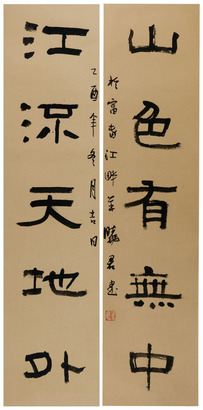 山色有無中
於富春江畔羊曉君書
乙酉年冬月吉日
江流天地外